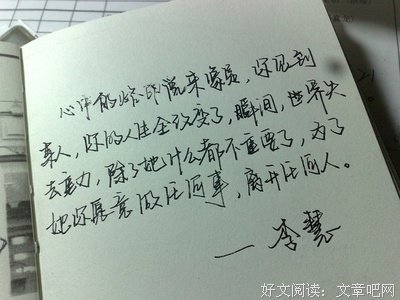 心中的烙印说来像是，你见到
某人，你的人生全改变了，瞬间，世界失
去重力，除了她什么都不重要了，为了
她你愿意做任何事，离开任何人。
— 李慧
好文阅读：文章吧网